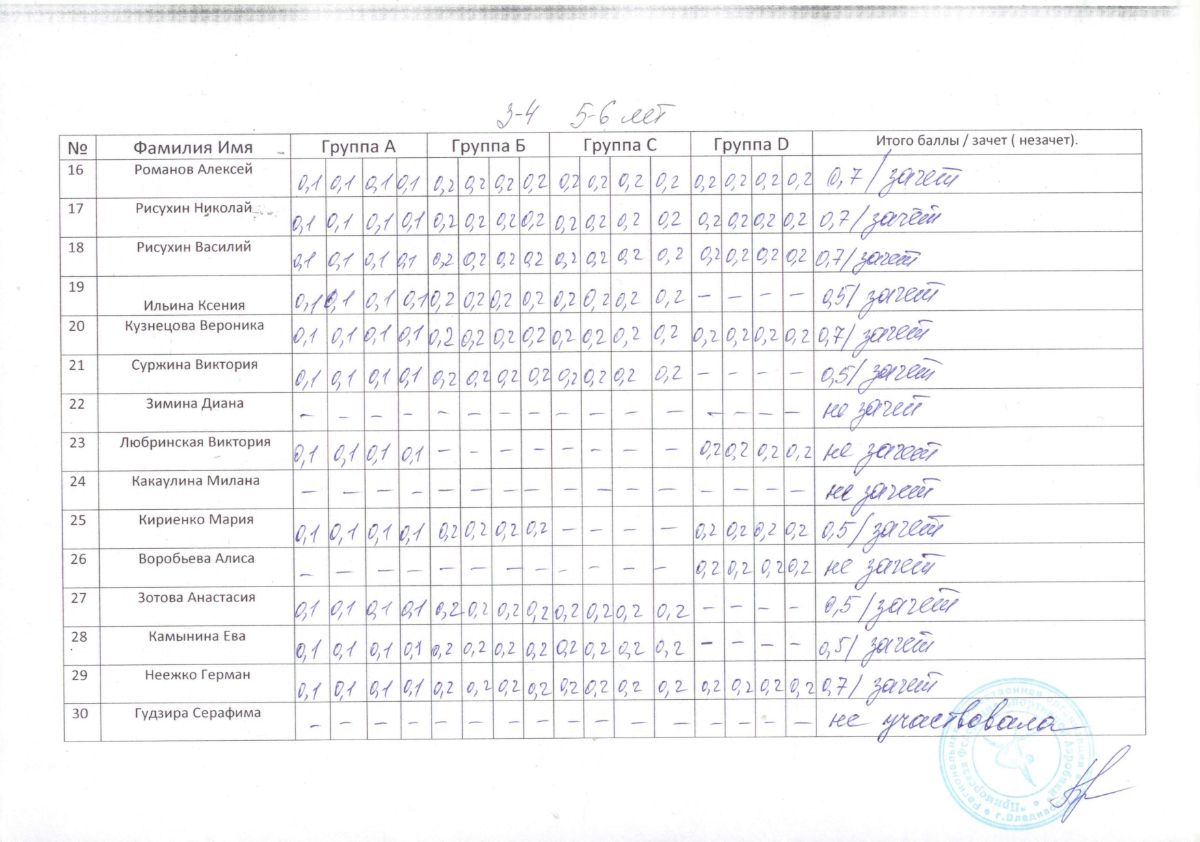 3-4 5-6 лет
№ Фамилия Имя Группа А Группа Б Группа С Группа D Итого баллы / зачет ( незачет).
16 Романов Алексей 0,1 0,1 0,1 0,1 0,2 0,2 0,2 0,2 0,2 0,2 0,2 0,2 0,2 0,2 0,2 0,2 0,7/зачет
17 Рисухин Николай 0,1 0,1 0,1 0,1 0,2 0,2 0,2 0,2 0,2 0,2 0,2 0,2 0,2 0,2 0,2 0,2 0,7/зачёт
18 Рисухин Василий 0,1 0,1 0,1 0,1 0,2 0,2 0,2 0,2 0,2 0,2 0,2 0,2 0,2 0,2 0,2 0,2 0,7/зачет
19 Ильина Ксения 0,1 0,1 0,1 0,1 0,2 0,2 0,2 0,2 0,2 0,2 0,2 0,2 – – – – 0,5/зачет
20 Кузнецова Вероника 0,1 0,1 0,1 0,1 0,2 0,2 0,2 0,2 0,2 0,2 0,2 0,2 0,2 0,2 0,2 0,2 0,7/зачет
21 Суржина Виктория 0,1 0,1 0,1 0,1 0,2 0,2 0,2 0,2 0,2 0,2 0,2 0,2 – – – – 0,5/зачет
22 Зимина Диана – – – – – – – – – – – – – – – – не зачет
23 Любринская Виктория 0,1 0,1 0,1 0,1 – – – – – – – – 0,2 0,2 0,2 0,2 не зачет
24 Какаулина Милана – – – – – – – – – – – – – – – – не зачет
25 Кириенко Мария 0,1 0,1 0,1 0,1 0,2 0,2 0,2 0,2 – – – – 0,2 0,2 0,2 0,2 0,5/зачет
26 Воробьева Алиса – – – – – – – – – – – – 0,2 0,2 0,2 0,2 не зачет
27 Зотова Анастасия 0,1 0,1 0,1 0,1 0,2 0,2 0,2 0,2 0,2 0,2 0,2 0,2 – – – – 0,5/зачет
28 Камынина Ева 0,1 0,1 0,1 0,1 0,2 0,2 0,2 0,2 0,2 0,2 0,2 0,2 – – – – 0,5/зачет
29 Неежко Герман 0,1 0,1 0,1 0,1 0,2 0,2 0,2 0,2 0,2 0,2 0,2 0,2 0,2 0,2 0,2 0,2 0,7/зачет
30 Гудзира Серафима – – – – – – – – – – – – – – – – не участвовала